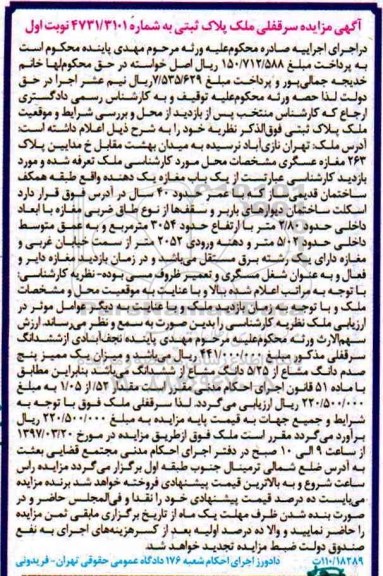 آگهی مزایده سرقفلی ملک پلاک ثبتی به شماره ۴۷۳۱/۳۱۰۱ نوبت اول
دراجرای اجراییه صادره محکوم‌علیه ورثه مرحوم مهدی پاینده محکوم است
به پرداخت مبلغ ۱۵۰/۷۱۲/۵۸۸ ریال اصل خواسته در حق محکوم‌لها خانم
خدیجه جمالی‌پور و پرداخت مبلغ ۷/۵۳۵/۶۲۹ریال نیم عشر اجرا در حق
دولت لذا حصه ورثه محکوم‌علیه توقیف و به کارشناس رسمی دادگستری
ارجاع که کارشناس منتخب پس از بازدید از محل و بررسی شرایط و موقعیت
ملک پلاک ثبتی فوق‌الذکر نظریه خود را به شرح ذیل اعلام داشته است:
آدرس ملک: تهران نازی‌آباد نرسیده به میدان بهشت مقابل خ مداین پلاک
۲۶۳ مغازه عسگری مشخصات محل مورد کارشناسی ملک تعرفه شده و مورد
بازدید کارشناسی عبارتست از یک باب مغازه یک دهنه واقع طبقه همکف
ساختمان قدیمی که با عمر حدود ۴۰ سال در آدرس فوق قرار دارد
اسکلت ساختمان دیوارهای باربر و سقف‌ها از نوع طاق ضربی مغازه با ابعاد
داخلی حدود ۲/۸۰ متر با ارتفاع حدود ۳۰۵۴ مترمربع و به عمق متوسط
داخلی حدود ۵/۰۲ متر و دهنه ورودی ۲۰۵۲ متر از سمت خیابان غربی و
مغازه دارای یک رشته برق مستقل می‌باشد و در زمان بازدید مغازه دایر و
فعال و به عنوان شغل مسگری و تعمیر ظروف مسی بوده- نظریه کارشناسی:
با توجه به مراتب اعلام شده بالا و با عنایت به موقعیت محل و مشخصات
ملک و با توجه به زمان بازدید ملک و با عنایت به دیگر عوامل موثر در
ارزیابی ملک نظریه کارشناسی را بدین صورت به سمع و نظر می‌رساند. ارزش
سهم‌الارث ورثه محکوم‌علیه مرحوم مهدی پاینده نجف‌آبادی ازششدانگ
سرقفلی مذکور مبلغ ۴۴۱/۰۰۰/۰۰۰ ریال می‌باشد و میزان یک ممیز پنج
صدم دانگ مشاع از ۵/۲۵ دانگ مشاع از ششدانگ می‌باشد بنابراین مطابق
با ماده ۵۱ قانون اجرای احکام مدنی مقدار ثمت مقدار ۵۲/ از ۱/۰۵ به مبلغ
۲۲۰/۵۰۰/۰۰۰ ریال ارزیابی می‌گردد. لذا سرقفلی ملک فوق با توجه به
شرایط و جمیع جهات به قیمت پایه مزایده به مبلغ ۲۲۰/۵۰۰/۰۰۰ ریال
برآورد می‌گردد مقرر است ملک فوق ازطریق مزایده در مورخ ۱۳۹۷/۰۳/۲۰
از ساعت ۹ الی ۱۰ صبح در دفتر اجرای احکام مدنی مجتمع قضایی بعثت
به آدرس ضلع شمالی ترمینال جنوب طبقه اول برگزار می‌گردد مزایده راس
ساعت شروع و به بالاترین قیمت پیشنهادی فروخته خواهد شد برنده مزایده
می‌بایست ده درصد قیمت پیشنهادی خود را نقدا و فی‌المجلس حاضر و در
صورت بنده شدن ظرف مهلت یک ماه از تاریخ برگزاری مابقی ثمن مزایده
را حاضر نمایید و والا ده درصد اولیه بعد از کسرهزینه‌های اجرای به نفع
صندوق دولت ضبط مزایده تجدید خواهد شد.
۱۱۰/۱۸۲۸۹ت دادورز اجرای احکام شعبه ۱۷۶ دادگاه عمومی حقوقی تهران- فریدونی